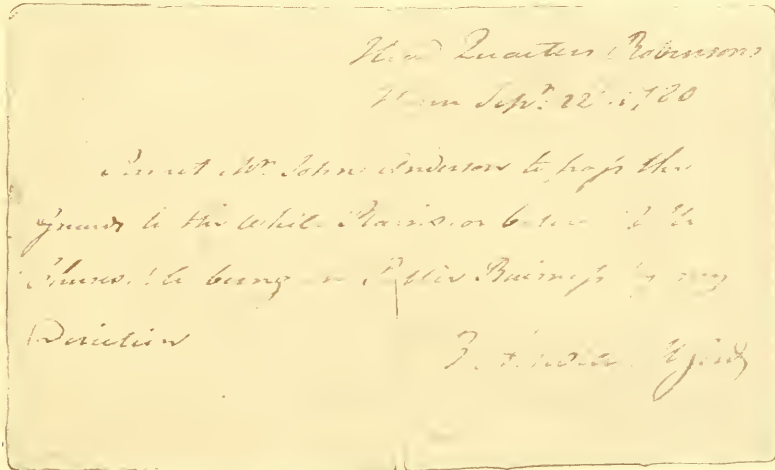 Head Quarters Robinsons
House Sepr. 22d. 1780
Permit Mr. John Anderson to pass the
Guards to the White Plains, or below if He
Chuses. He being on Public Business by my
Direction
B. Arnold M Genl